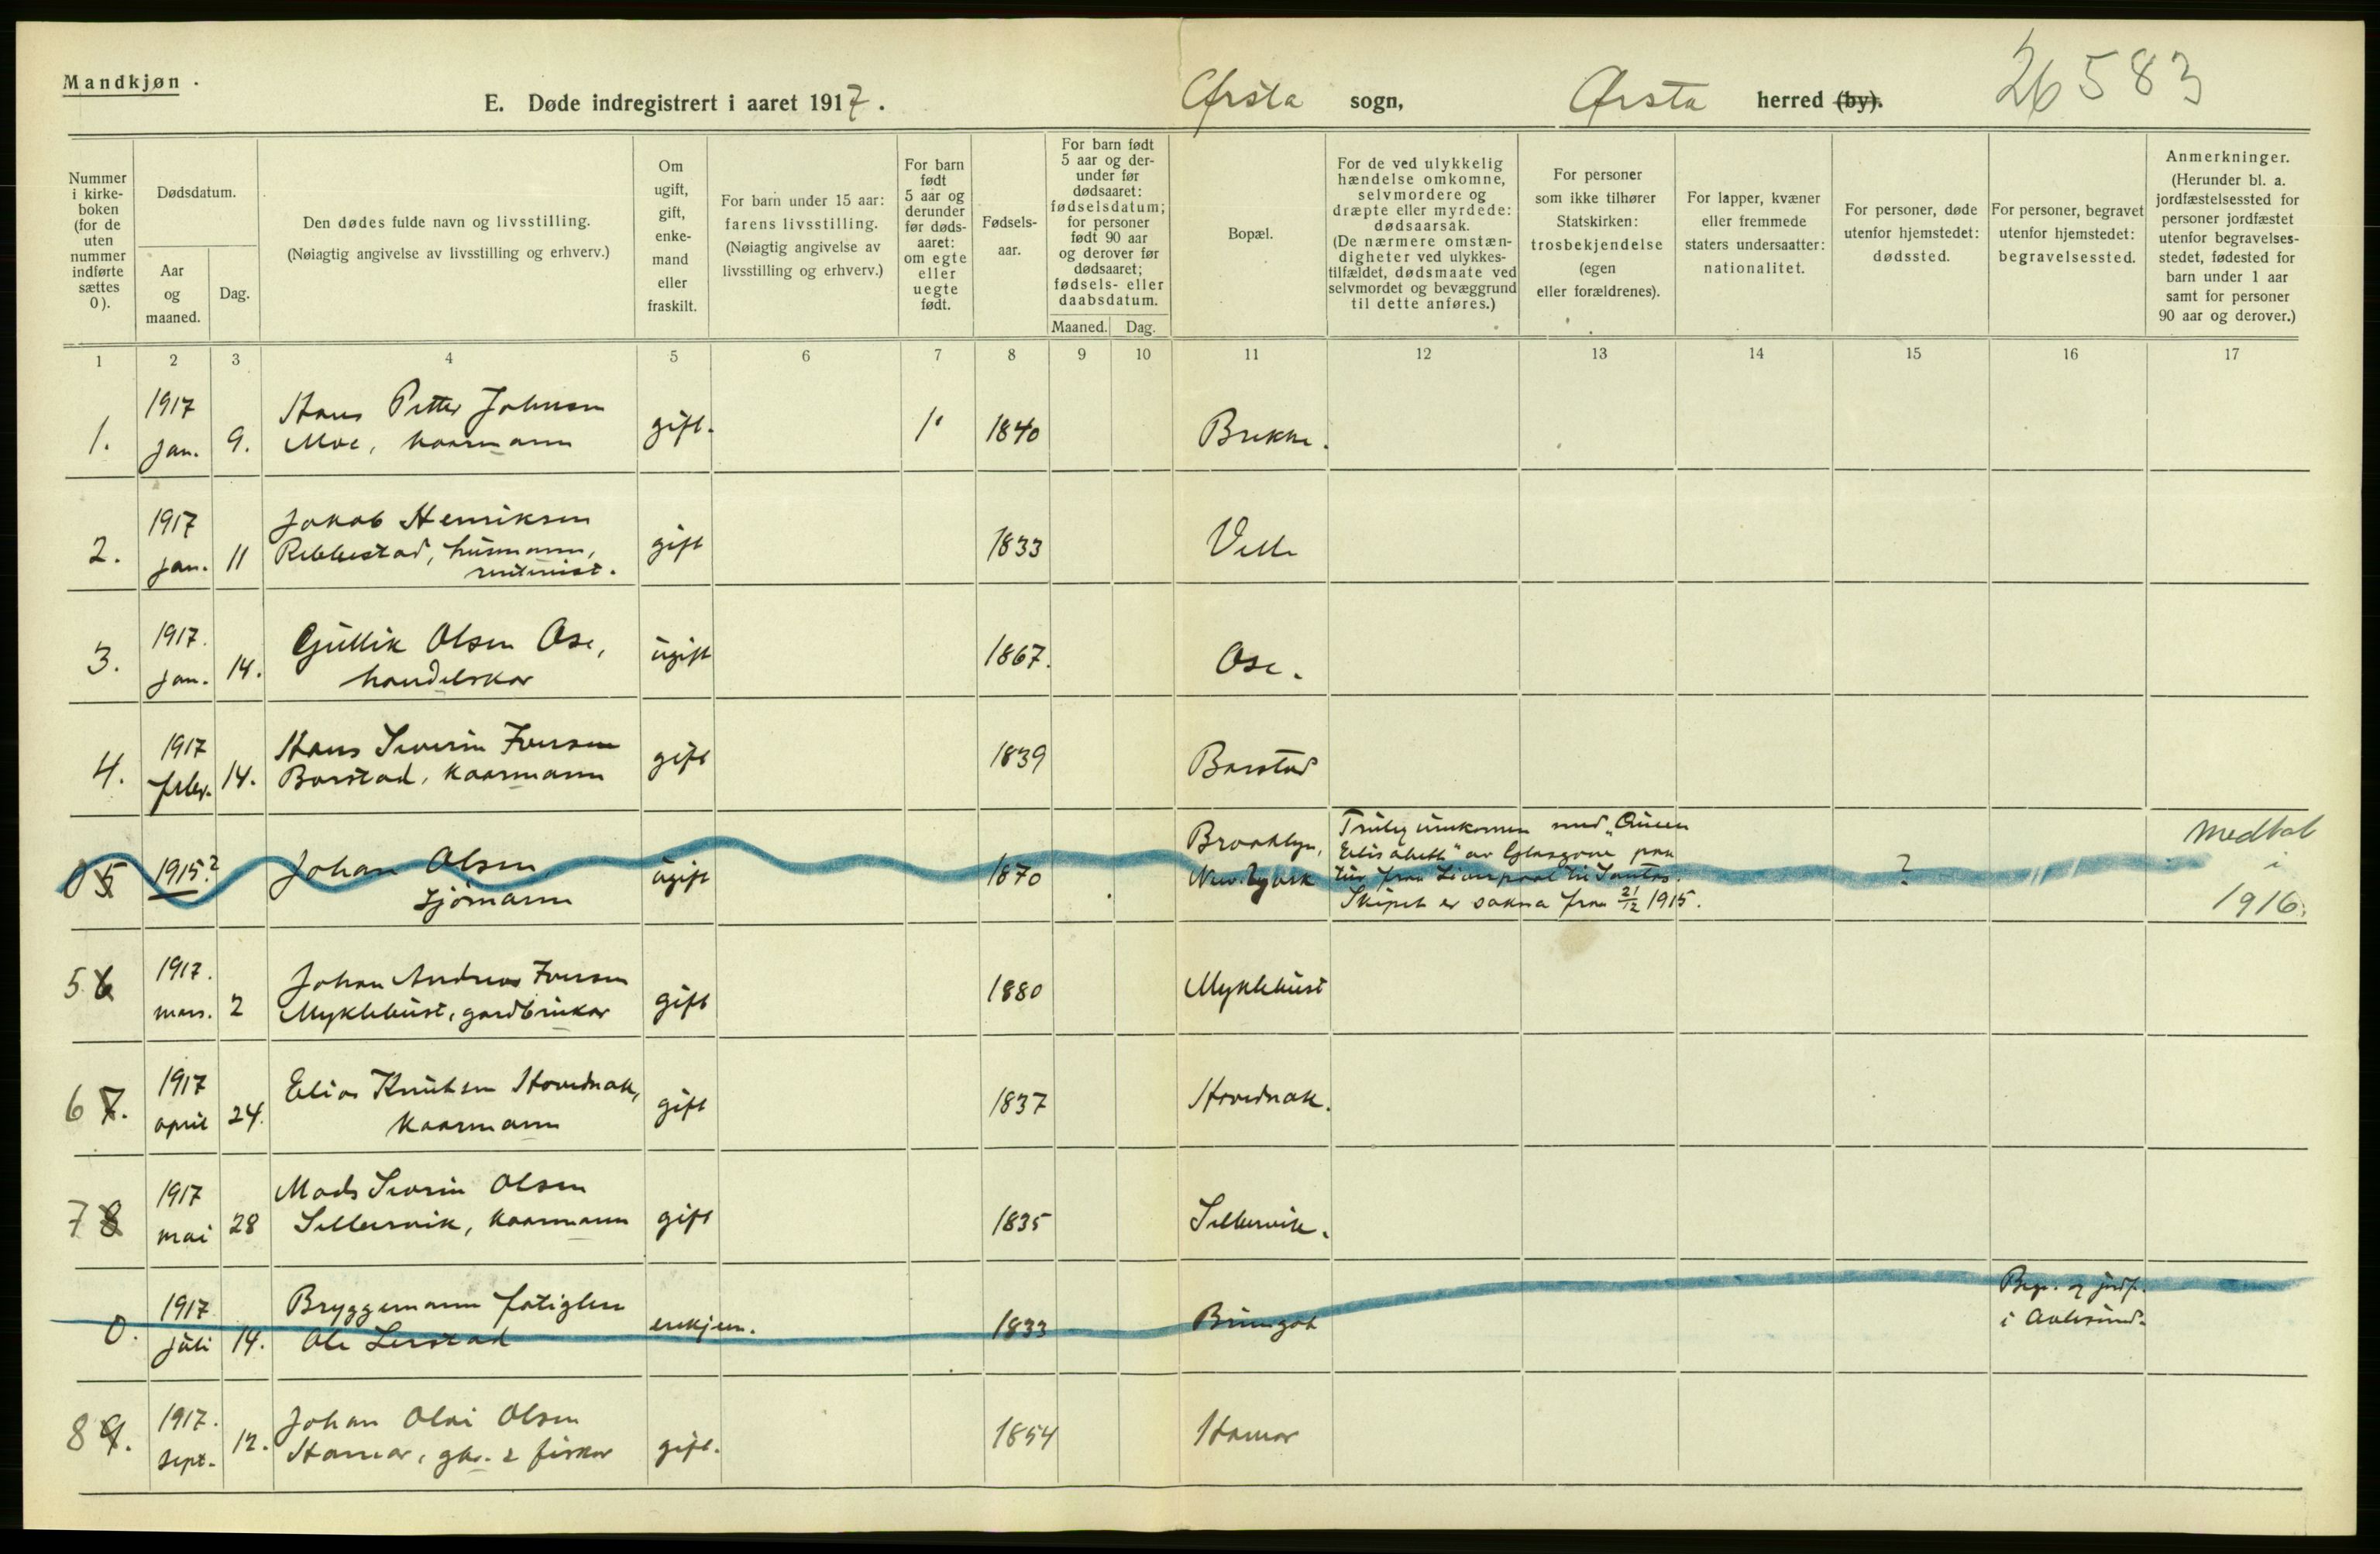 Mandkjøn.
E. Døde indregistrert i aaret 1917.
Ørsta sogn, Ørsta herred (by).
26583
Nummer
i kirke-
boken
(for de
uten
nummer
indførte
sættes
0).
Dødsdatum.
Aar
og
maaned.
Dag.
Den dødes fulde navn og livsstilling.
(Nøiagtig angivelse av livsstilling og erhverv.)
Om
ugift,
gift,
enke-
mand
eller
fraskilt.
For barn under 15 aar:
farens livsstilling.
(Nøiagtig angivelse av
livsstilling og erhverv.)
For barn
født
5 aar og
derunder
før døds-
aaret:
om egte
eller
uegte
født.
Fødsels-
aar.
For barn født
5 aar og der-
under før
dødsaaret:
fødselsdatum;
for personer
født 90 aar
og derover før
dødsaaret;
fødsels- eller
daabsdatum.
Maaned. Dag.
Bopæl.
For de ved ulykkelig
hændelse omkomne,
selvmordere og
dræpte eller myrdede:
dødsaarsak.
(De nærmere omstæn-
digheter ved ulykkes-
tilfældet, dødsmaate ved
selvmordet og bevæggrund
til dette anføres.)
For personer
som ikke tilhører
Statskirken:
trosbekjendelse
(egen
eller forældrenes).
For lapper, kvæner
eller fremmede
staters undersaatter:
nationalitet.
For personer, døde
utenfor hjemstedet:
dødssted.
For personer, begravet
utenfor hjemstedet:
begravelsessted.
Anmerkninger.
(Herunder bl. a.
jordfæstelsessted for
personer jordfæstet
utenfor begravelses-
stedet, fødested for
barn under 1 aar
samt for personer
90 aar og derover.)
1 2 3 4 5 6 7 8 9 10 11 12 13 14 15 16 17
1917 Hans Petter Johnsen
1. jan. 9. Moe, kaarmann gift. 1840 Brekke.
1917 Jakob Henriksen
2. jan. 11 Rebbestad, husmann, gift 1833 Velle
1917. Gullik Olsen Ose,
3. jan. 14. handelskar ugift 1867. Ose.
1917 Hans Severin Iversen
4. febr. 14. Barstad, kaarmann gift 1839 Barstad
0 5 1915? Johan Olsen ugift 1870 Brooklyn,
sjømann New-York
Truleg umkomen med "Queen
Elisabeth" av Glasgow paa
tur fraa Liverpool til Santos.
Skipet er sakna fraa 21/12 1915.
?
Medtat
i
1916.
1917. Johan Andreas Iversen
5 6 mars. 2 Myklebust, gardbrukar gift 1880 Myklebust
1917 Elias Knutsen Hovdenak,
6 7. april 24. kaarmann gift 1837 Hovdenak.
1917 Mads Sevrin Olsen
7 8 mai 28 Sellervik, kaarmann gift 1835 Sellervik.
1917 Bryggemann fatiglem
0. juli 14. Ole Lerstad enkjem. 1833 Brungot
Begr. og jordf.
i Aalesund.
1917. Johan Olai Olsen
8 9. sept. 12. Hamar, gbr. & fiskar gift. 1854 Hamar